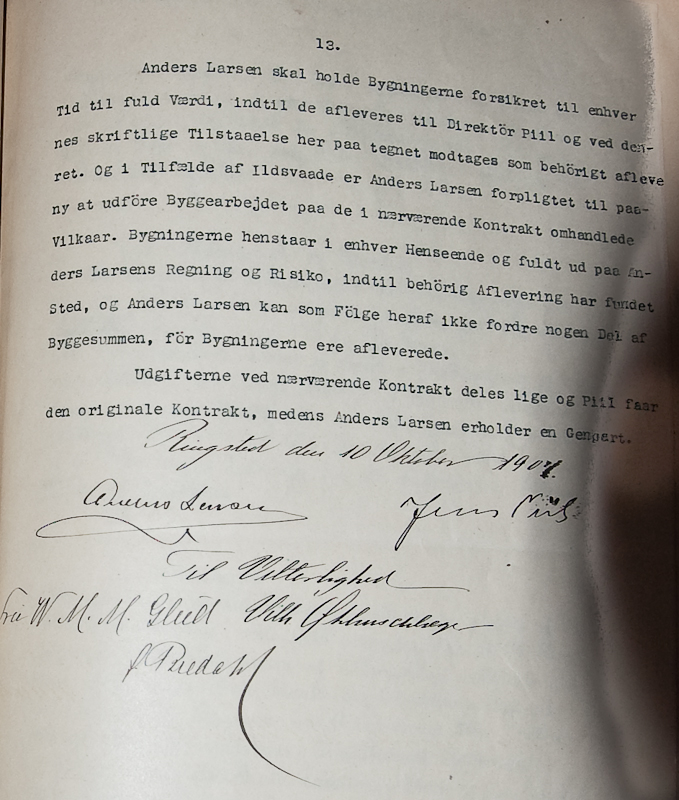 13.
Anders Larsen skal holde Bygningerne forsikret til enhver
Tid til fuld Værdi, indtil de afleveres til Direktör Piil og ved den-
nes skriftlige Tilstaaelse her paa tegnet modtages som behörigt afleve
ret. Og i Tilfælde af Ildsvaade er Anders Larsen forpligtet til paa-
ny at udföre Byggearbejdet paa de i nærværende Kontrakt omhandlede
Vilkaar. Bygningerne henstaar i enhver Henseende og fuldt ud paa An-
ders Larsens Regning og Risiko, indtil behörig Aflevering har fundet
Sted, og Anders Larsen kan som Fölge heraf ikke fordre nogen Del af
Byggesummen, för Bygningerne ere afleverede.
Udgifterne ved nærværende Kontrakt deles lige og Piil faar
den originale Kontrakt, medens Anders Larsen erholder en Genpart.
Ringsted den 10 Oktober 1907.
Anders Larsen Jens Piil
Til Vitterlighed
W. M. M. Glud Vilh